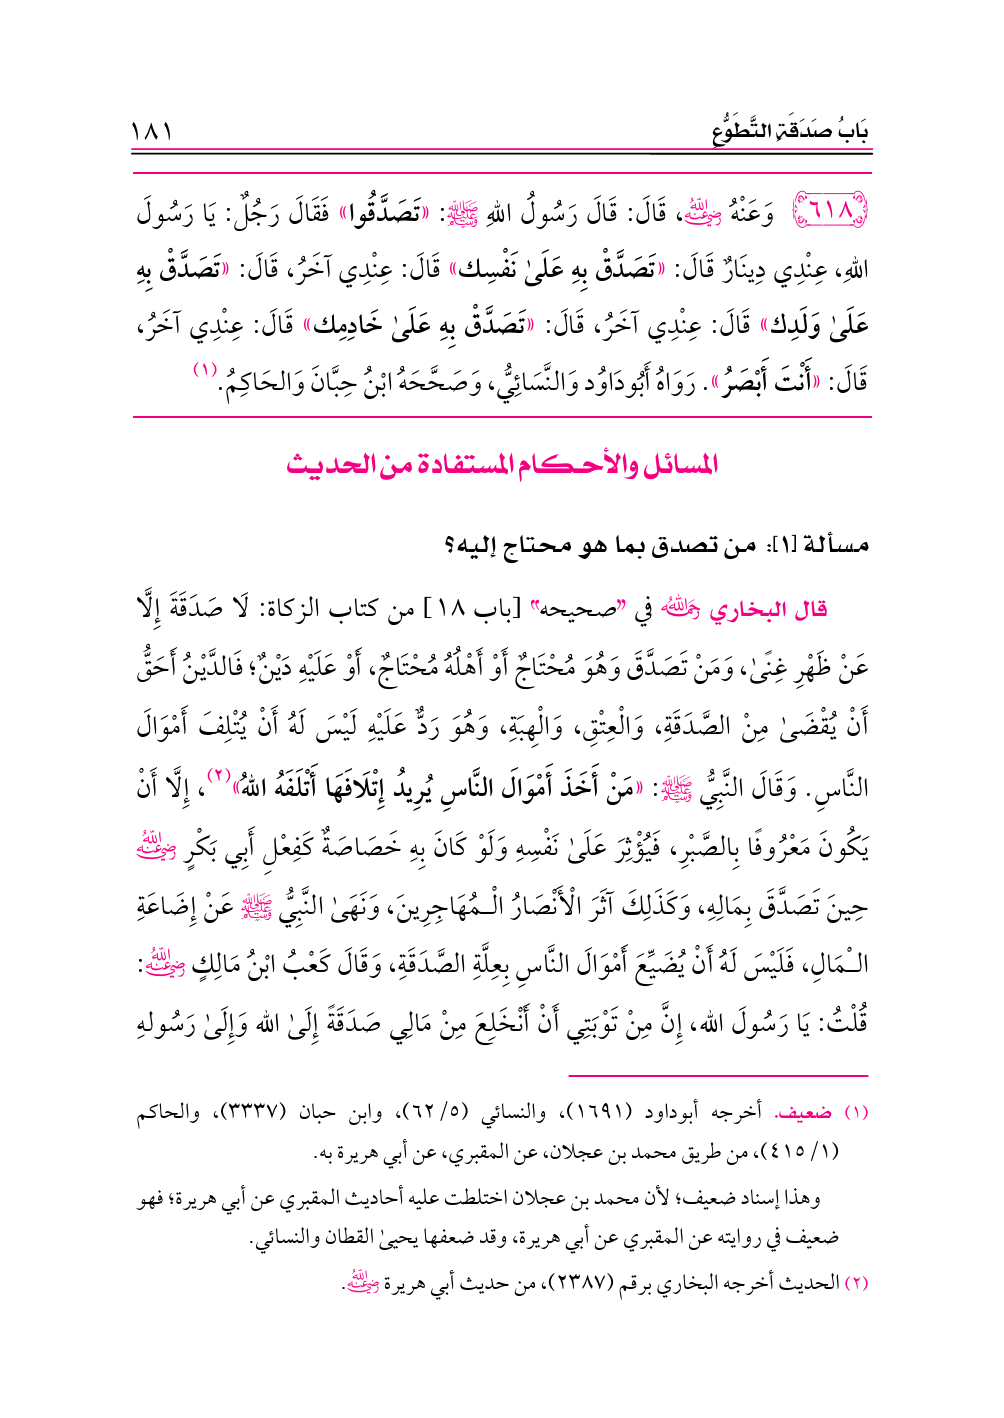 بَابُ صَدَقَةِ التَّطَوُّعِ ١٨١
٦١٨ وَعَنْهُ رضي الله عنه، قَالَ: قَالَ رَسُولُ اللهِ ﷺ: «تَصَدَّقُوا» فَقَالَ رَجُلٌ: يَا رَسُولَ
اللهِ، عِنْدِي دِينَارٌ قَالَ: «تَصَدَّقْ بِهِ عَلَىٰ نَفْسِك» قَالَ: عِنْدِي آخَرُ، قَالَ: «تَصَدَّقْ بِهِ
عَلَىٰ وَلَدِك» قَالَ: عِنْدِي آخَرُ، قَالَ: «تَصَدَّقْ بِهِ عَلَىٰ خَادِمِك» قَالَ: عِنْدِي آخَرُ،
قَالَ: «أَنْتَ أَبْصَرُ». رَوَاهُ أَبُودَاوُد وَالنَّسَائِيُّ، وَصَحَّحَهُ ابْنُ حِبَّانَ وَالحَاكِمُ.(١)
المسائل والأحكام المستفادة من الحديث
مسألة [١]: من تصدق بما هو محتاج إليه؟
قال البخاري رحمه الله في "صحيحه" [باب ١٨] من كتاب الزكاة: لَا صَدَقَةَ إِلَّا
عَنْ ظَهْرِ غِنًىٰ، وَمَنْ تَصَدَّقَ وَهُوَ مُحْتَاجٌ أَوْ أَهْلُهُ مُحْتَاجٌ، أَوْ عَلَيْهِ دَيْنٌ؛ فَالدَّيْنُ أَحَقُّ
أَنْ يُقْضَىٰ مِنْ الصَّدَقَةِ، وَالْعِتْقِ، وَالْهِبَةِ، وَهُوَ رَدٌّ عَلَيْهِ لَيْسَ لَهُ أَنْ يُتْلِفَ أَمْوَالَ
النَّاسِ. وَقَالَ النَّبِيُّ ﷺ: «مَنْ أَخَذَ أَمْوَالَ النَّاسِ يُرِيدُ إِتْلَافَهَا أَتْلَفَهُ اللهُ»(٢)، إِلَّا أَنْ
يَكُونَ مَعْرُوفًا بِالصَّبْرِ، فَيُؤْثِرَ عَلَىٰ نَفْسِهِ وَلَوْ كَانَ بِهِ خَصَاصَةٌ كَفِعْلِ أَبِي بَكْرٍ رضي الله عنه
حِينَ تَصَدَّقَ بِمَالِهِ، وَكَذَلِكَ آثَرَ الْأَنْصَارُ الْـمُهَاجِرِينَ، وَنَهَىٰ النَّبِيُّ ﷺ عَنْ إِضَاعَةِ
الـْمَالِ، فَلَيْسَ لَهُ أَنْ يُضَيِّعَ أَمْوَالَ النَّاسِ بِعِلَّةِ الصَّدَقَةِ، وَقَالَ كَعْبُ ابْنُ مَالِكٍ رضي الله عنه:
قُلْتُ: يَا رَسُولَ الله، إِنَّ مِنْ تَوْبَتِي أَنْ أَنْخَلِعَ مِنْ مَالِي صَدَقَةً إِلَىٰ الله وَإِلَىٰ رَسُولهِ
(١) ضعيف. أخرجه أبوداود (١٦٩١)، والنسائي (٥/ ٦٢)، وابن حبان (٣٣٣٧)، والحاكم
(١/ ٤١٥)، من طريق محمد بن عجلان، عن المقبري، عن أبي هريرة به.
وهذا إسناد ضعيف؛ لأن محمد بن عجلان اختلطت عليه أحاديث المقبري عن أبي هريرة؛ فهو
ضعيف في روايته عن المقبري عن أبي هريرة، وقد ضعفها يحيىٰ القطان والنسائي.
(٢) الحديث أخرجه البخاري برقم (٢٣٨٧)، من حديث أبي هريرة رضي الله عنه.